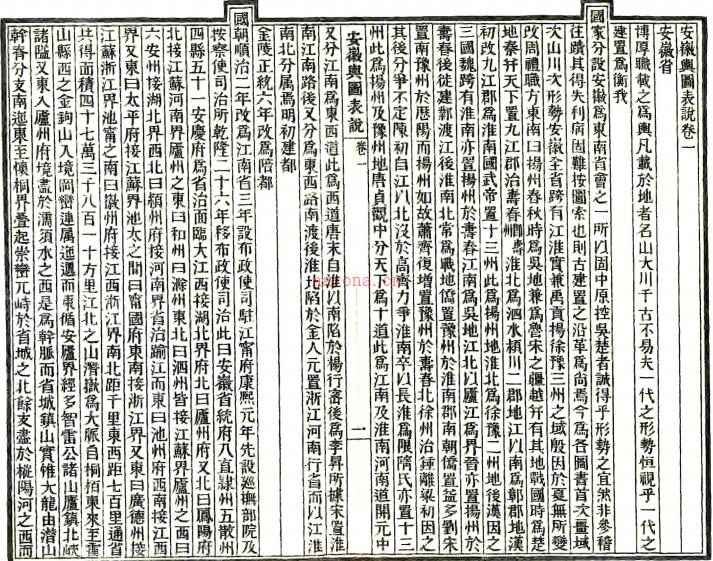 安徽輿圖表說卷一
安徽省
博厚職載之爲輿凡載於地者名山大川千古不易夫一代之形勢恒視乎一代之
建置爲衡我
國家分設安徽爲東南省會之一所以固中原控吳楚者誠得乎形勢之宜然非參稽
往蹟其得失利病固難按圖索也則古建置之沿革爲尚焉今爲各圖書首次量域
次山川次形勢安徽全省跨有江淮實兼禹貢揚徐豫三州之域殷因於夏無所變
改周禮職方東南曰揚州春秋時爲吳地兼爲魯宋之疆越幷有其地戰國時爲楚
地秦幷天下置九江郡治壽春淮北爲泗水潁川二郡地江以南爲鄣郡地漢
初改九江郡爲淮南國武帝置十三州此爲揚州地淮北爲徐豫二州地後漢因之
三國魏跨有淮南亦置揚州於壽春江南爲吳地江北以廬江爲界晉亦置揚州於
壽春後徙建鄴渡江後淮南北常爲戰地僑置豫州於淮南郡南朝僑置益多劉宋
置南豫州於歷陽而揚州如故蕭齊復增置豫州於壽春北徐州治鍾離梁初因之
其後分爭不定陳初自江以北沒於高齊力爭淮南卒以長淮爲限隋氏亦置十三
州此爲揚州及豫州地唐貞觀中分天下爲十道此爲江南及淮南河南道開元中
安徽輿圖表說 卷一 一
又分江南爲東西道此爲西道唐末自淮以南陷於楊行密後爲李昇所據宋置淮
南江南路後又分爲東西路南渡後淮北陷於金人元置浙江河南行省而以江
南北分屬焉明初建都
金陵正統六年改爲陪都
國朝順治二年改爲江南省三年設布政使司駐江甯府康熙元年先設巡撫部院及
按察使司治所乾隆二十六年移布政使司治此曰安徽省統府八直隸州五散州
四縣五十一安慶府爲省治面臨大江西接湖北界府北曰廬州府又北曰鳳陽府
北接江蘇河南界廬州之東曰和州曰滁州東北曰泗州皆接江蘇界廬州之西曰
六安州接湖北界西北曰潁州府接河南界省治踰江而東曰池州府西南接江西
界又東曰太平府接江蘇界池太之間曰甯國府東南接浙江界又東曰廣德州接
江蘇浙江界池甯之南曰徽州府接江西浙江界南北距千里東西距七百里通省
共得面積四十七萬三千八百一十方里江北之山潛嶽爲大脈自桐栢東來至霍
山縣西之金鉤山入境岡巒連属迤邐而東循安廬界經多智雷公諸山廬鎮北峽
諸隘又東入廬州府境盡於濡須水之西是爲幹脈而省城鎮山實惟大龍由潛山
幹脊分支南迤東至懷桐界疊起崇巒亢峙於省城之北餘支盡於樅陽河之西而